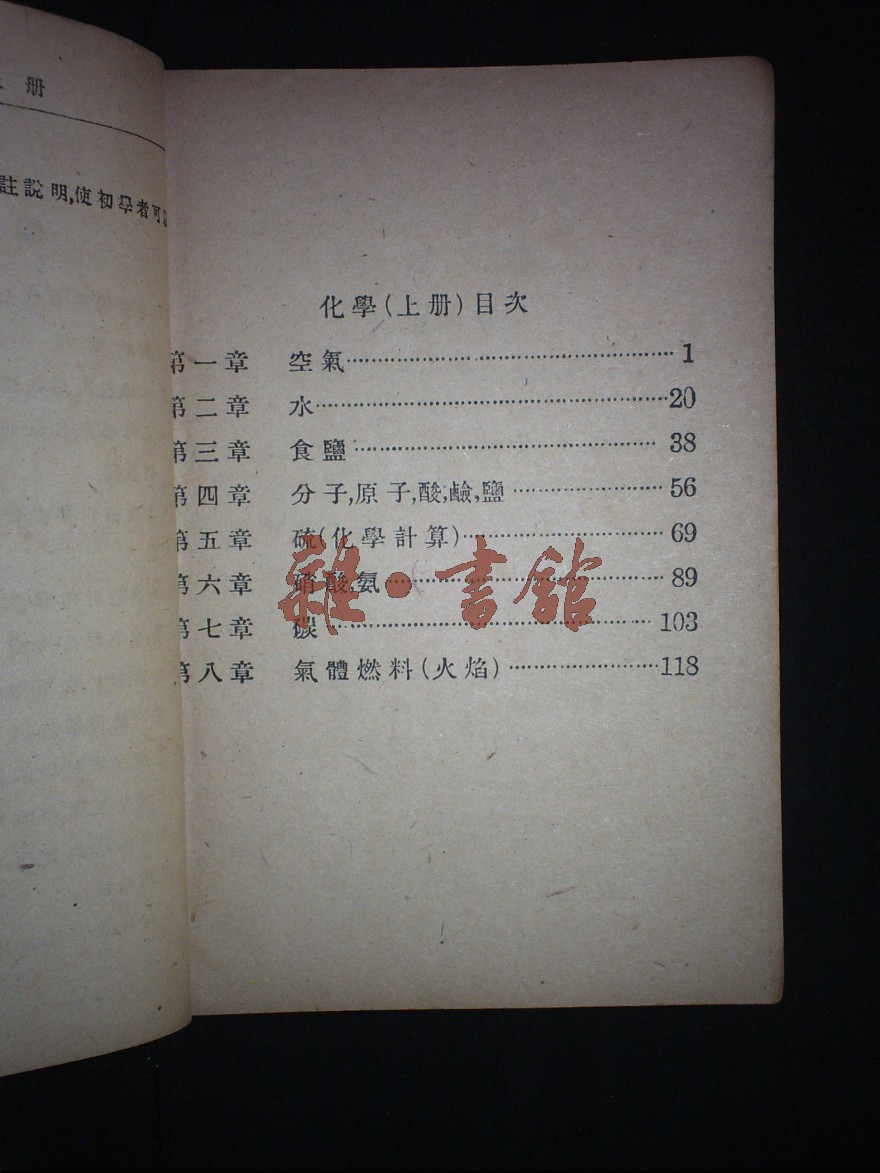 册
註說明,使初學者可
化學(上册)目次
第一章 空氣 1
第二章 水 20
第三章 食鹽 38
第四章 分子,原子,酸,鹼,鹽 56
第五章 硫(化學計算) 69
第六章 硝酸,氨 89
第七章 碳 103
第八章 氣體燃料(火焰) 118
雜·書館